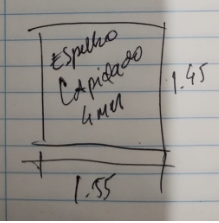 Espelho
Lapidado
4mm
1.45
1.55